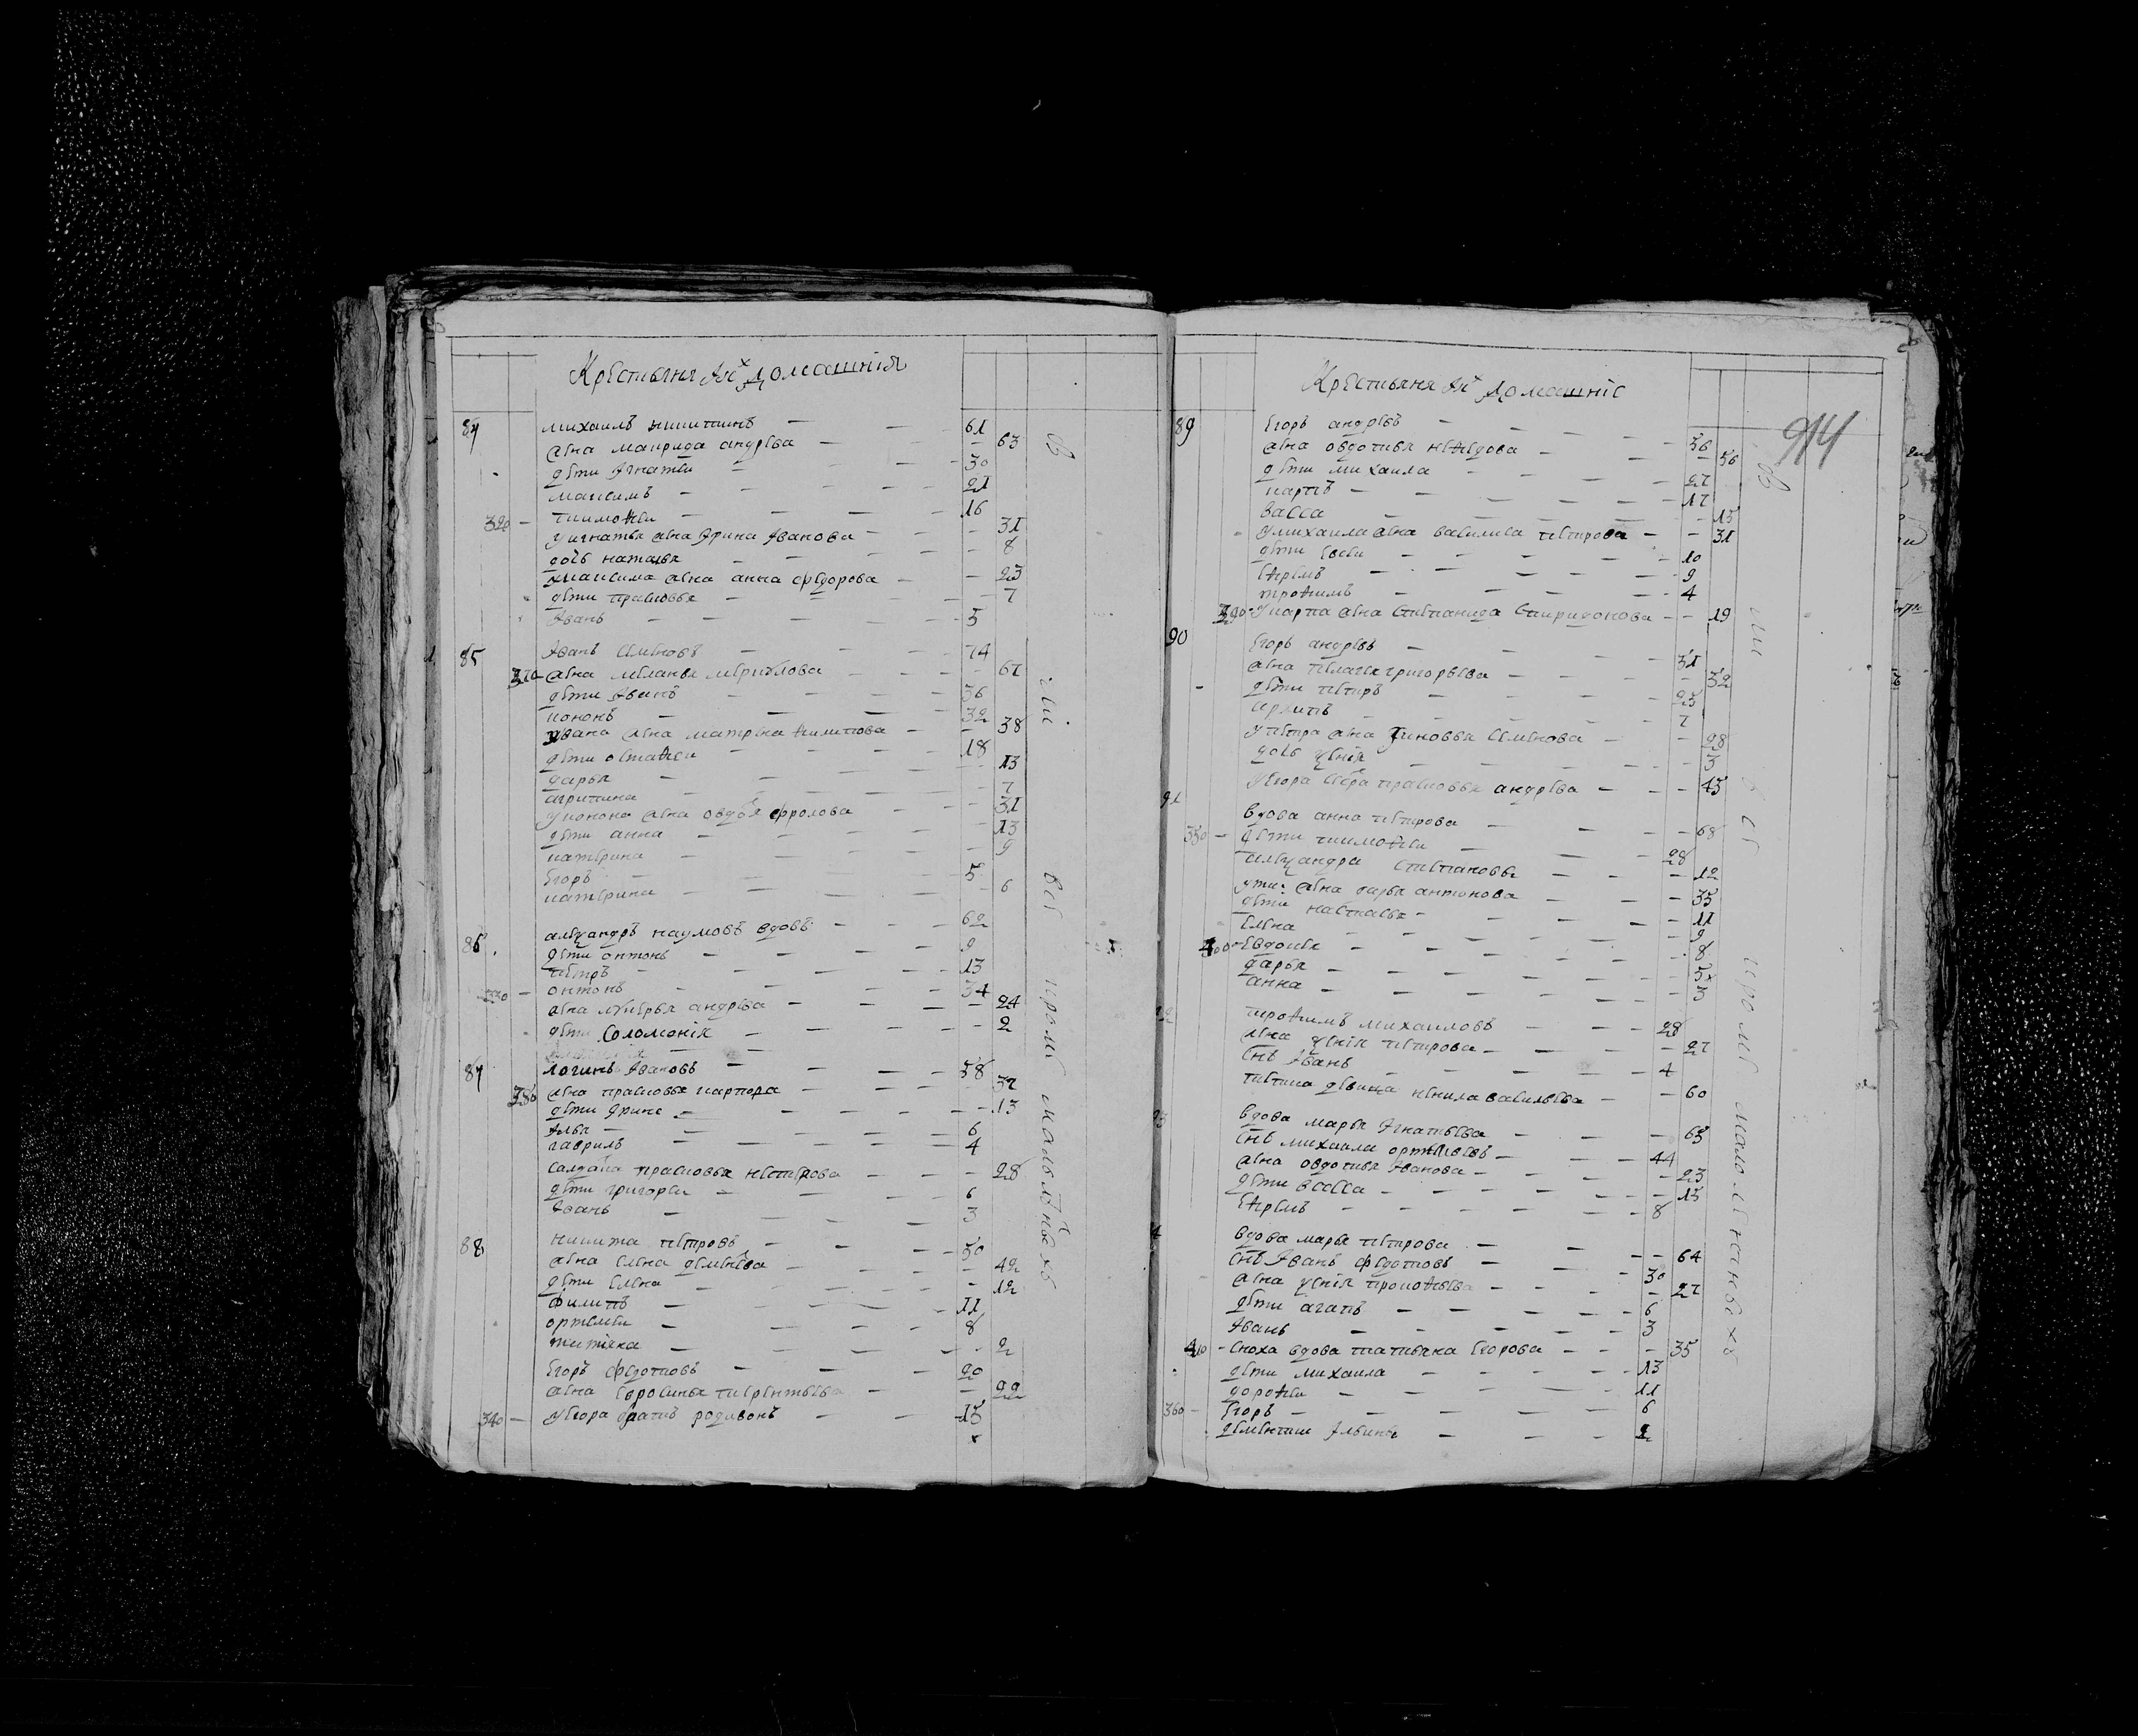 Крестьяня ихъ домашнія
84 михаилъ никитинъ 61
жена маврида андрѣева 63
дѣти Игнатеи 30
максимъ 21
320 тимоѳеи 16
у игнатья жена Ярина Иванова 31
дочь наталья 8
у максима жена анна федорова 23
дѣти прасковья 7
Иванъ 5
85 Иванъ Семеновъ 74
370 жена меланья меркулова 67
дѣти Иванъ 36
кононъ 32
у ивана жена матрена филипова 38
дѣти остаѳеи 18
дарья 13
агрипина 7
у конона жена овдотья фролова 31
дѣти анна 13
катерина 9
Егоръ 5
катерина 6
86 алеѯандръ наумовъ вдовъ 62
дѣти онтонъ 9
петръ 13
330 онтонъ 34
жена лукерья андрѣева 24
дѣти Соломонія 2
87 логинъ Ивановъ 58
350 жена прасковья карпова 37
дѣти Ярина 13
Илья 6
гаврилъ 4
салдатка прасковья нестерова 28
дѣти григореи 6
Иванъ 3
88 никита петровъ 50
жена елена дементева 42
дѣти елена 12
филипъ 11
ортемеи 8
титяна 2
Егоръ федотовъ 20
жена Ефросинья терентьева 22
340 у Егора братъ родивонъ 15
вси
все
кроме
малолѣтныхъ
Крестьяня ихъ домашніе
914
89 Егоръ андрѣевъ 56
жена овдотья неѳедова 56
дѣти михаила 27
карпъ 17
васса 15
у михаила жена василиса петрова 31
дѣти Евсеи 10
Еѳремъ 9
троѳимъ 4
390 у карпа жена Степанида Спиридонова 19
90 Егоръ андрѣевъ 51
жена пелагея григорьева 52
дѣти петръ 25
карпъ 7
у петра жена Зиновья Семенова 28
дочь ѯенія 3
у Егора сестра прасковья андрѣева 45
91 вдова анна петрова 68
350 дѣти тимоѳеи 28
алеѯандра Степановы 12
у тим: жена дарья антонова 35
дѣти настасья 11
Елена 9
300 Евдокея 8
дарья 5
анна 3
92 троѳимъ михаиловъ 28
жена ѯенія петрова 27
снъ Иванъ 4
тетка дѣвица ненила васильева 60
93 вдова марья Игнатьева 63
снъ михаила ортемевъ 44
жена овдотья Иванова 23
дѣти васса 15
Еѳремъ 8
4 вдова марья петрова 64
снъ Иванъ федотовъ 30
жена ѯенія прокоѳьева 27
дѣти агапъ 6
Иванъ 3
410 сноха вдова татьяна Егорова 35
дѣти михаила 13
дороѳеи 11
360 Егоръ 6
дементеи Ильинъ 2
вси
все
кроме
малолетныхъ